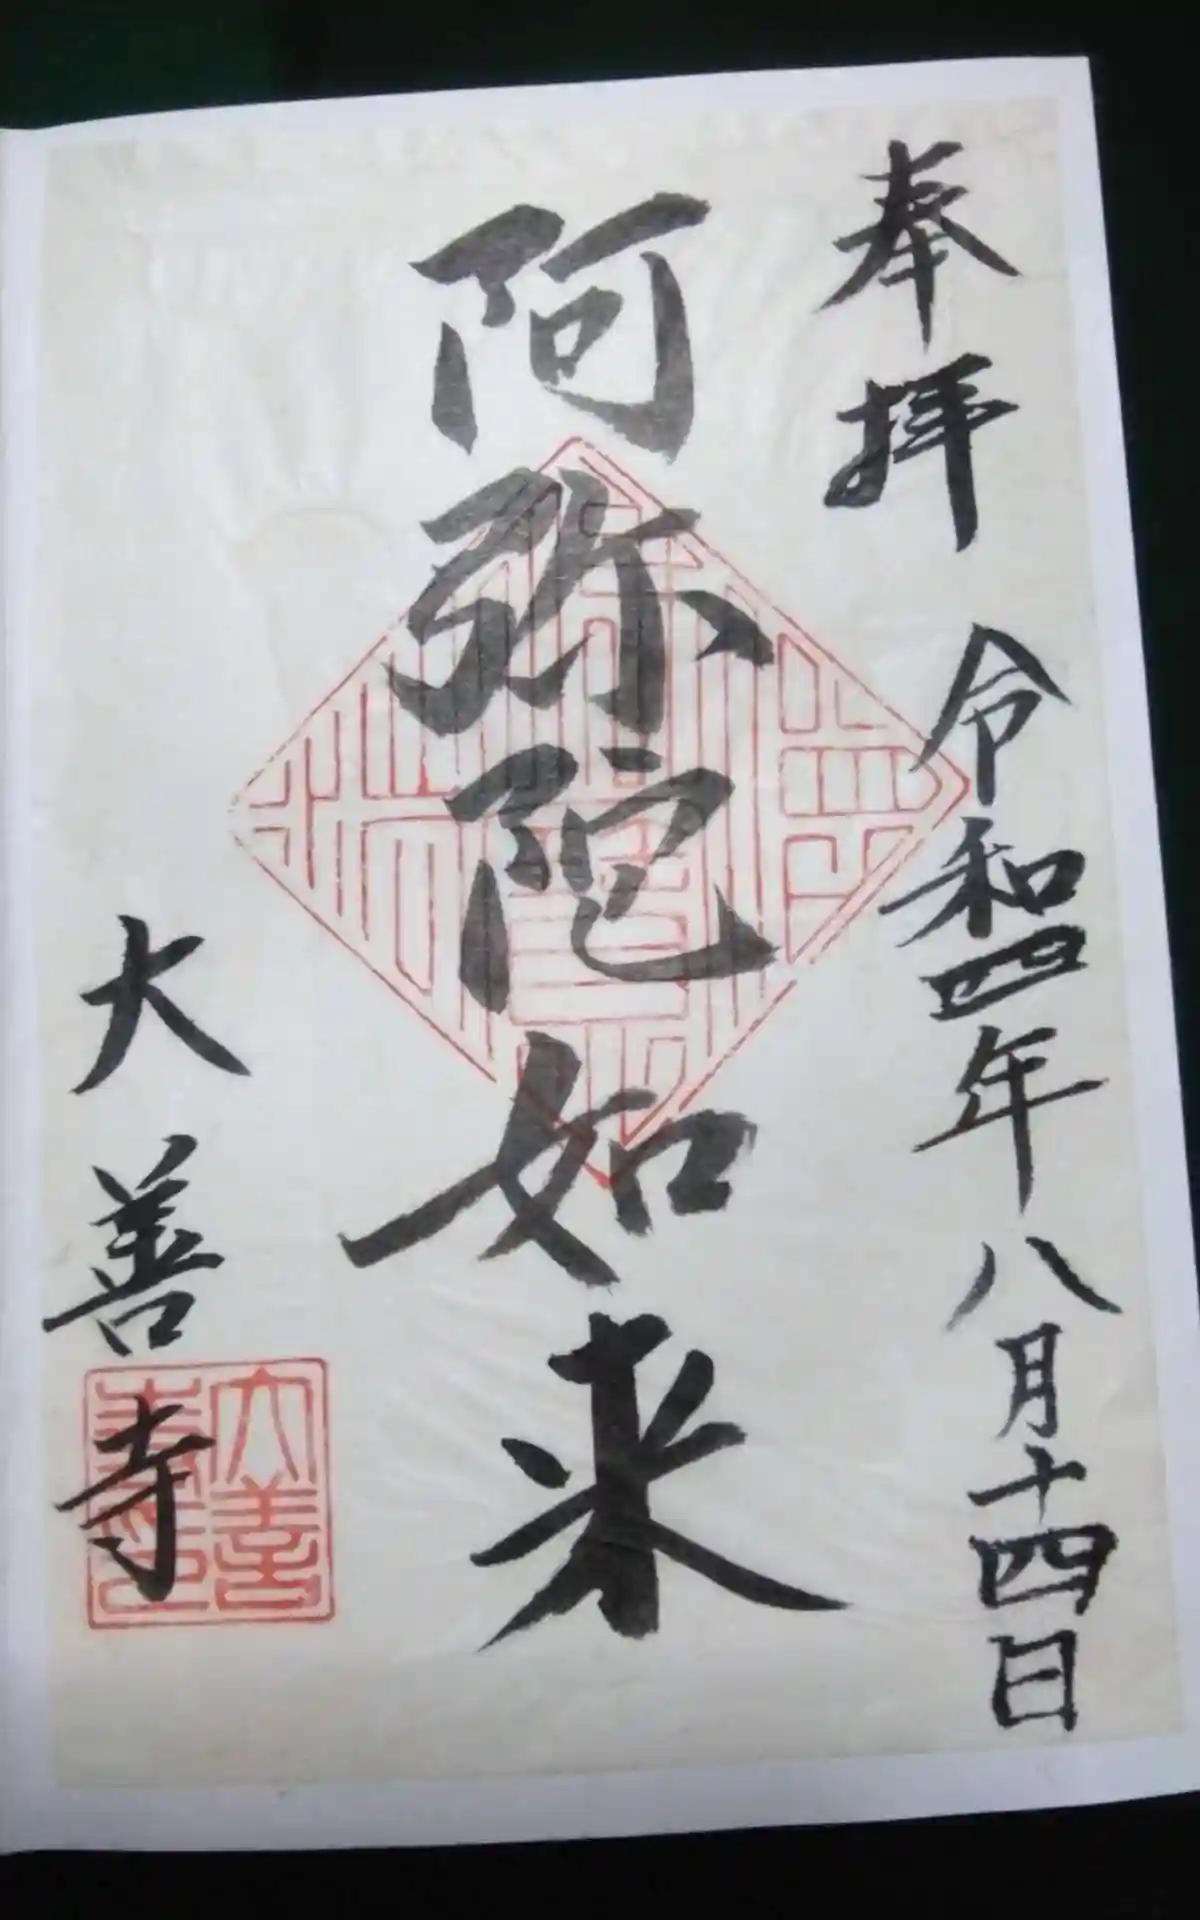 奉拝
令和四年八月十四日
阿弥陀如来
大善寺
大善